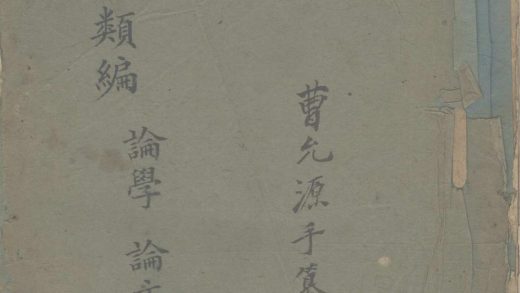 曹允源手
類編
論學 論